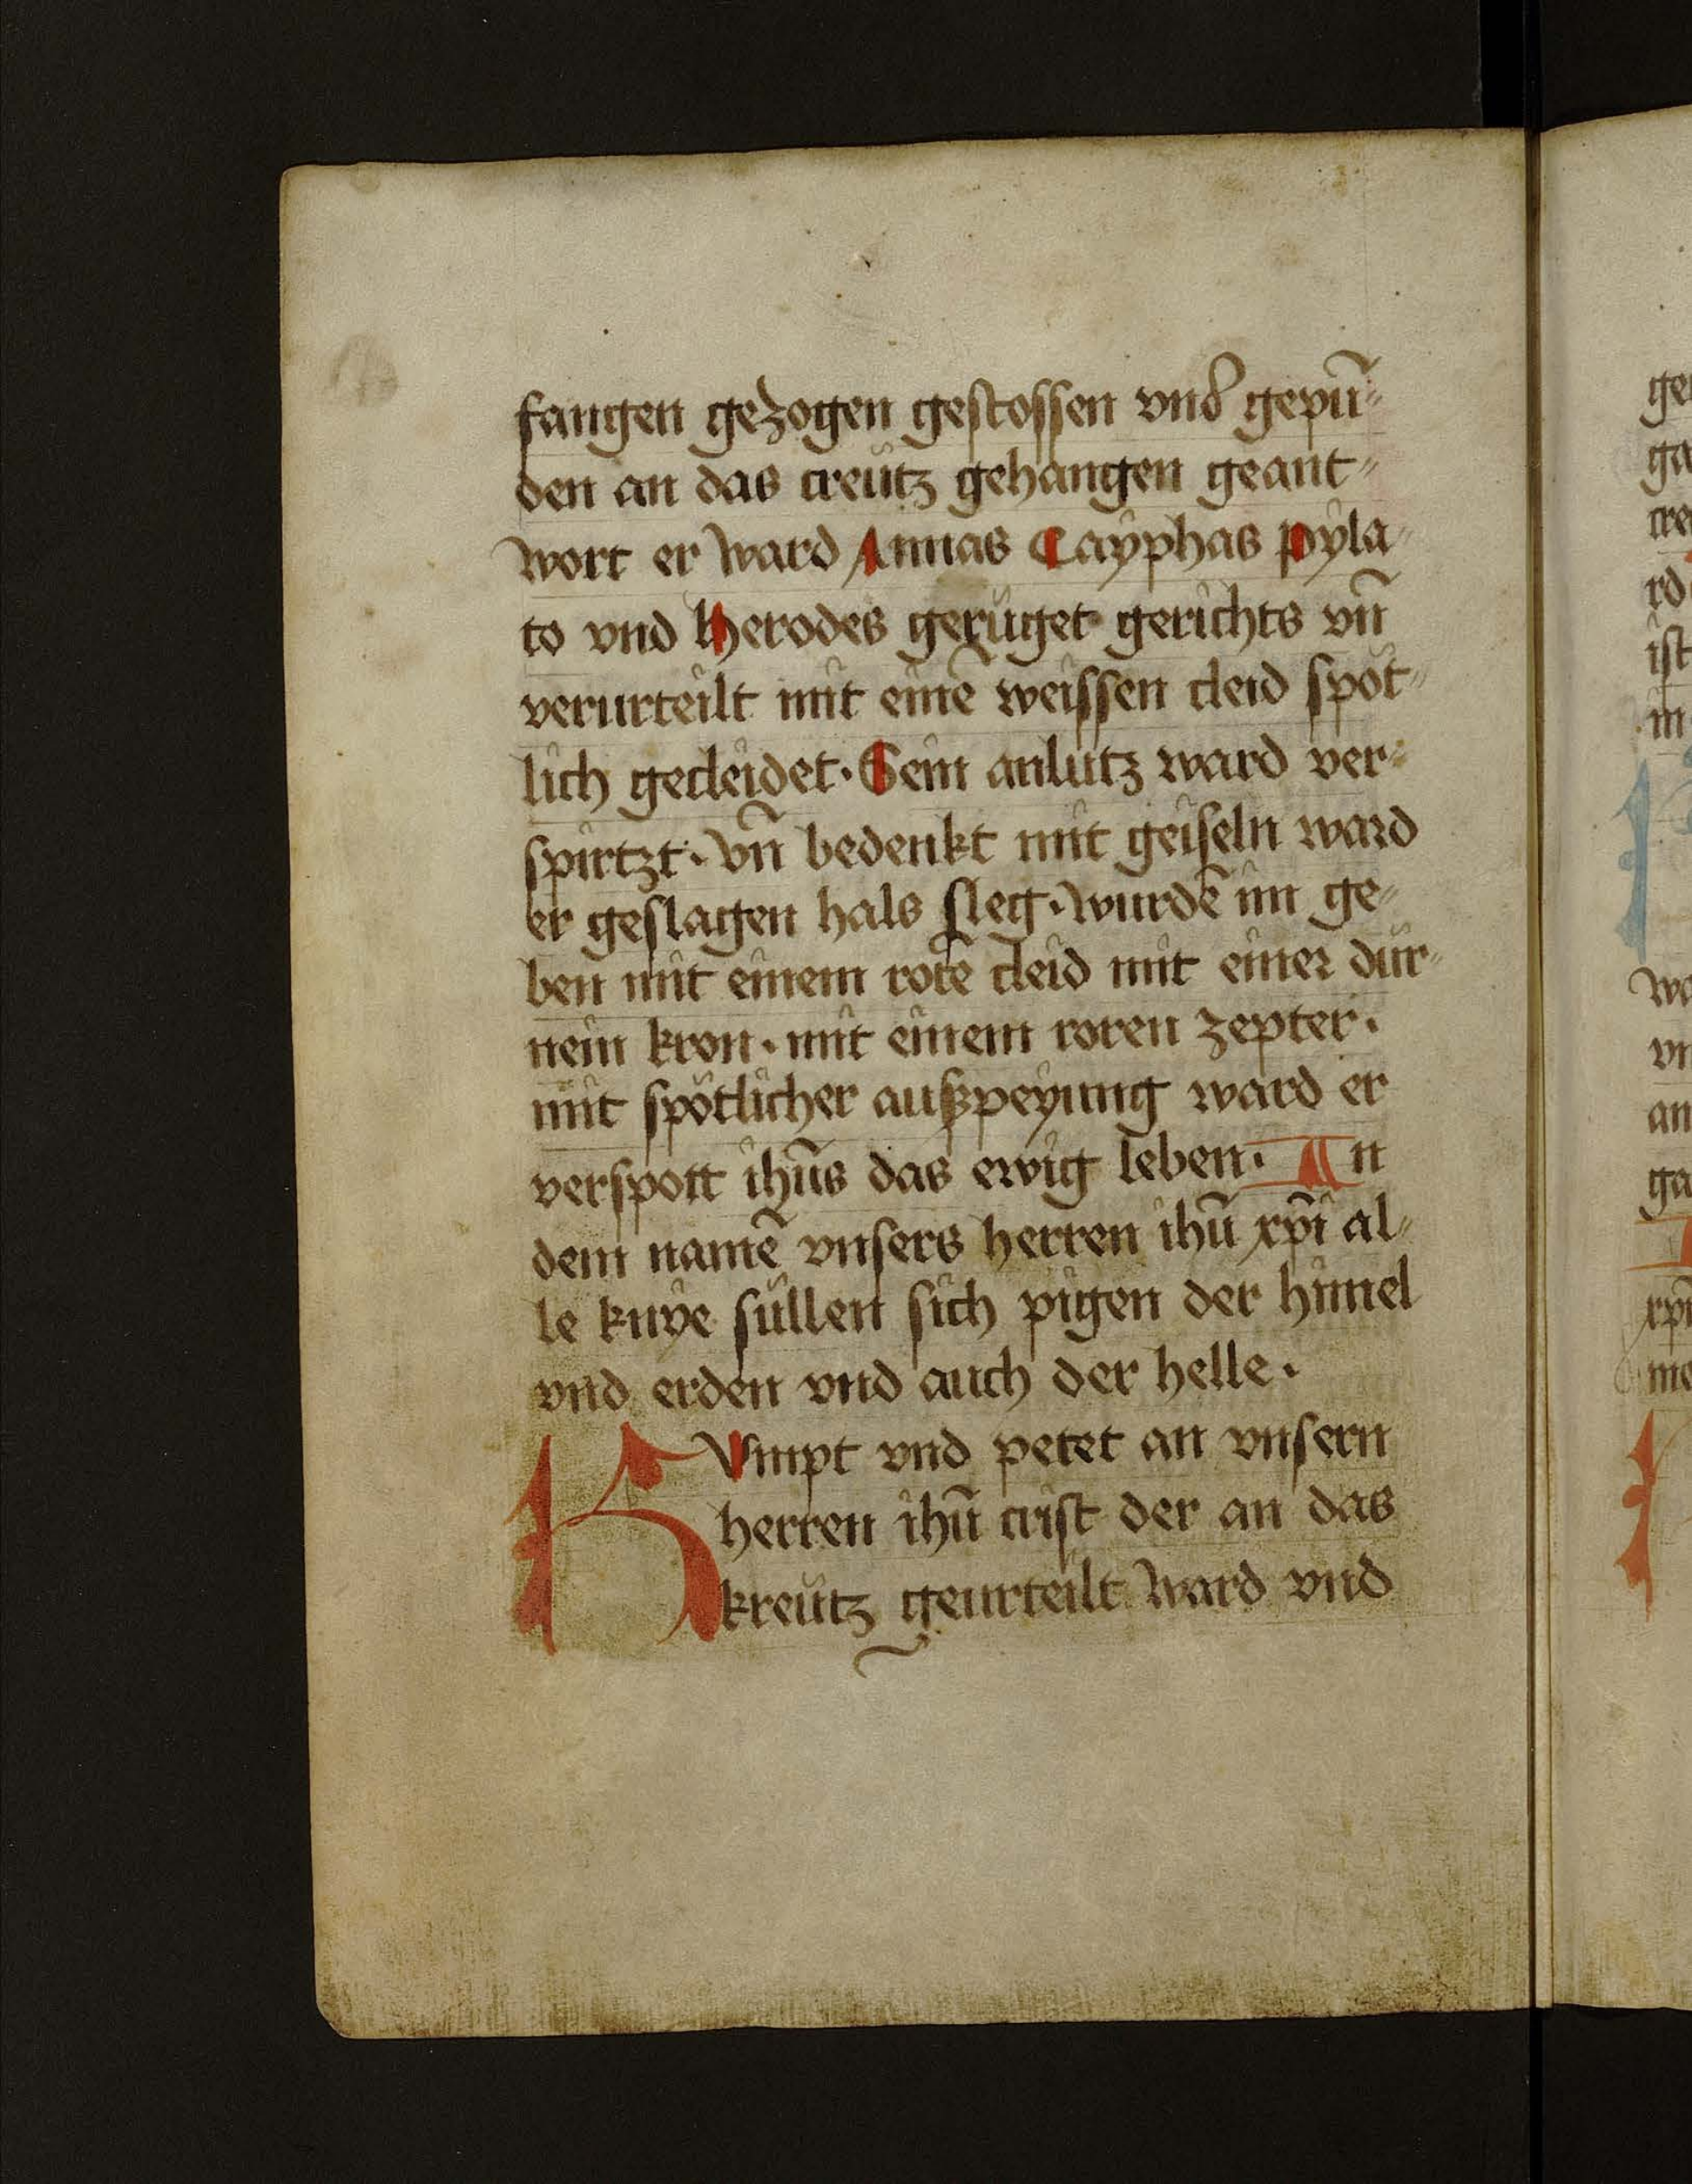 fangen gezogen gestossen vnd gepū-
den an das creütz gehangen geant-
wort er ward Annas Cayphas pyla-
to vnd herodes gerüget gerichts vn̄
verurteilt mit einē weissen cleid spöt-
lich gecleidet· Sein anlütz ward ver-
spirtzt· vn̄ bedenkt mit geiseln ward
er geslagen hals sleg· wurdē im ge-
ben mit einem rotē cleid mit einer dür-
nein kron· mit einem roren zepter·
mit spötlicher außpeyung ward er
verspott ihūs das ewig leben· An
dem namē vnsers herren ihū xp̄i al-
le knye süllen sich pigen der himel
vnd erden vnd auch der helle·
KVmpt vnd petet an vnsern
herren ihū crist der an das
kreütz geurteilt ward vnd